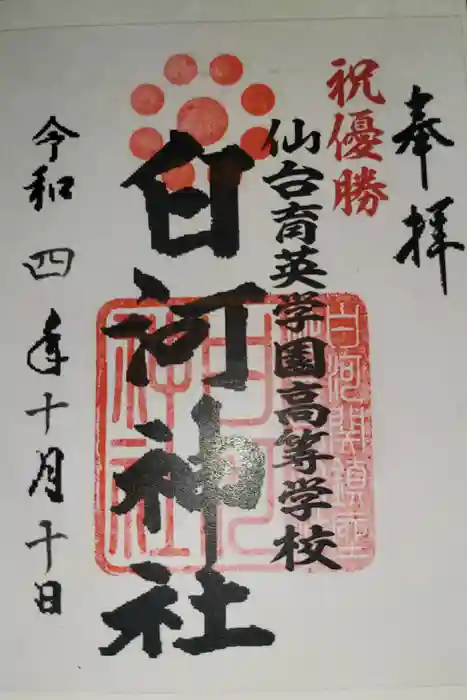 奉拝
祝優勝
仙台育英学園高等学校
白河関鎮座
白河神社
白河神社
令和四年十月十日